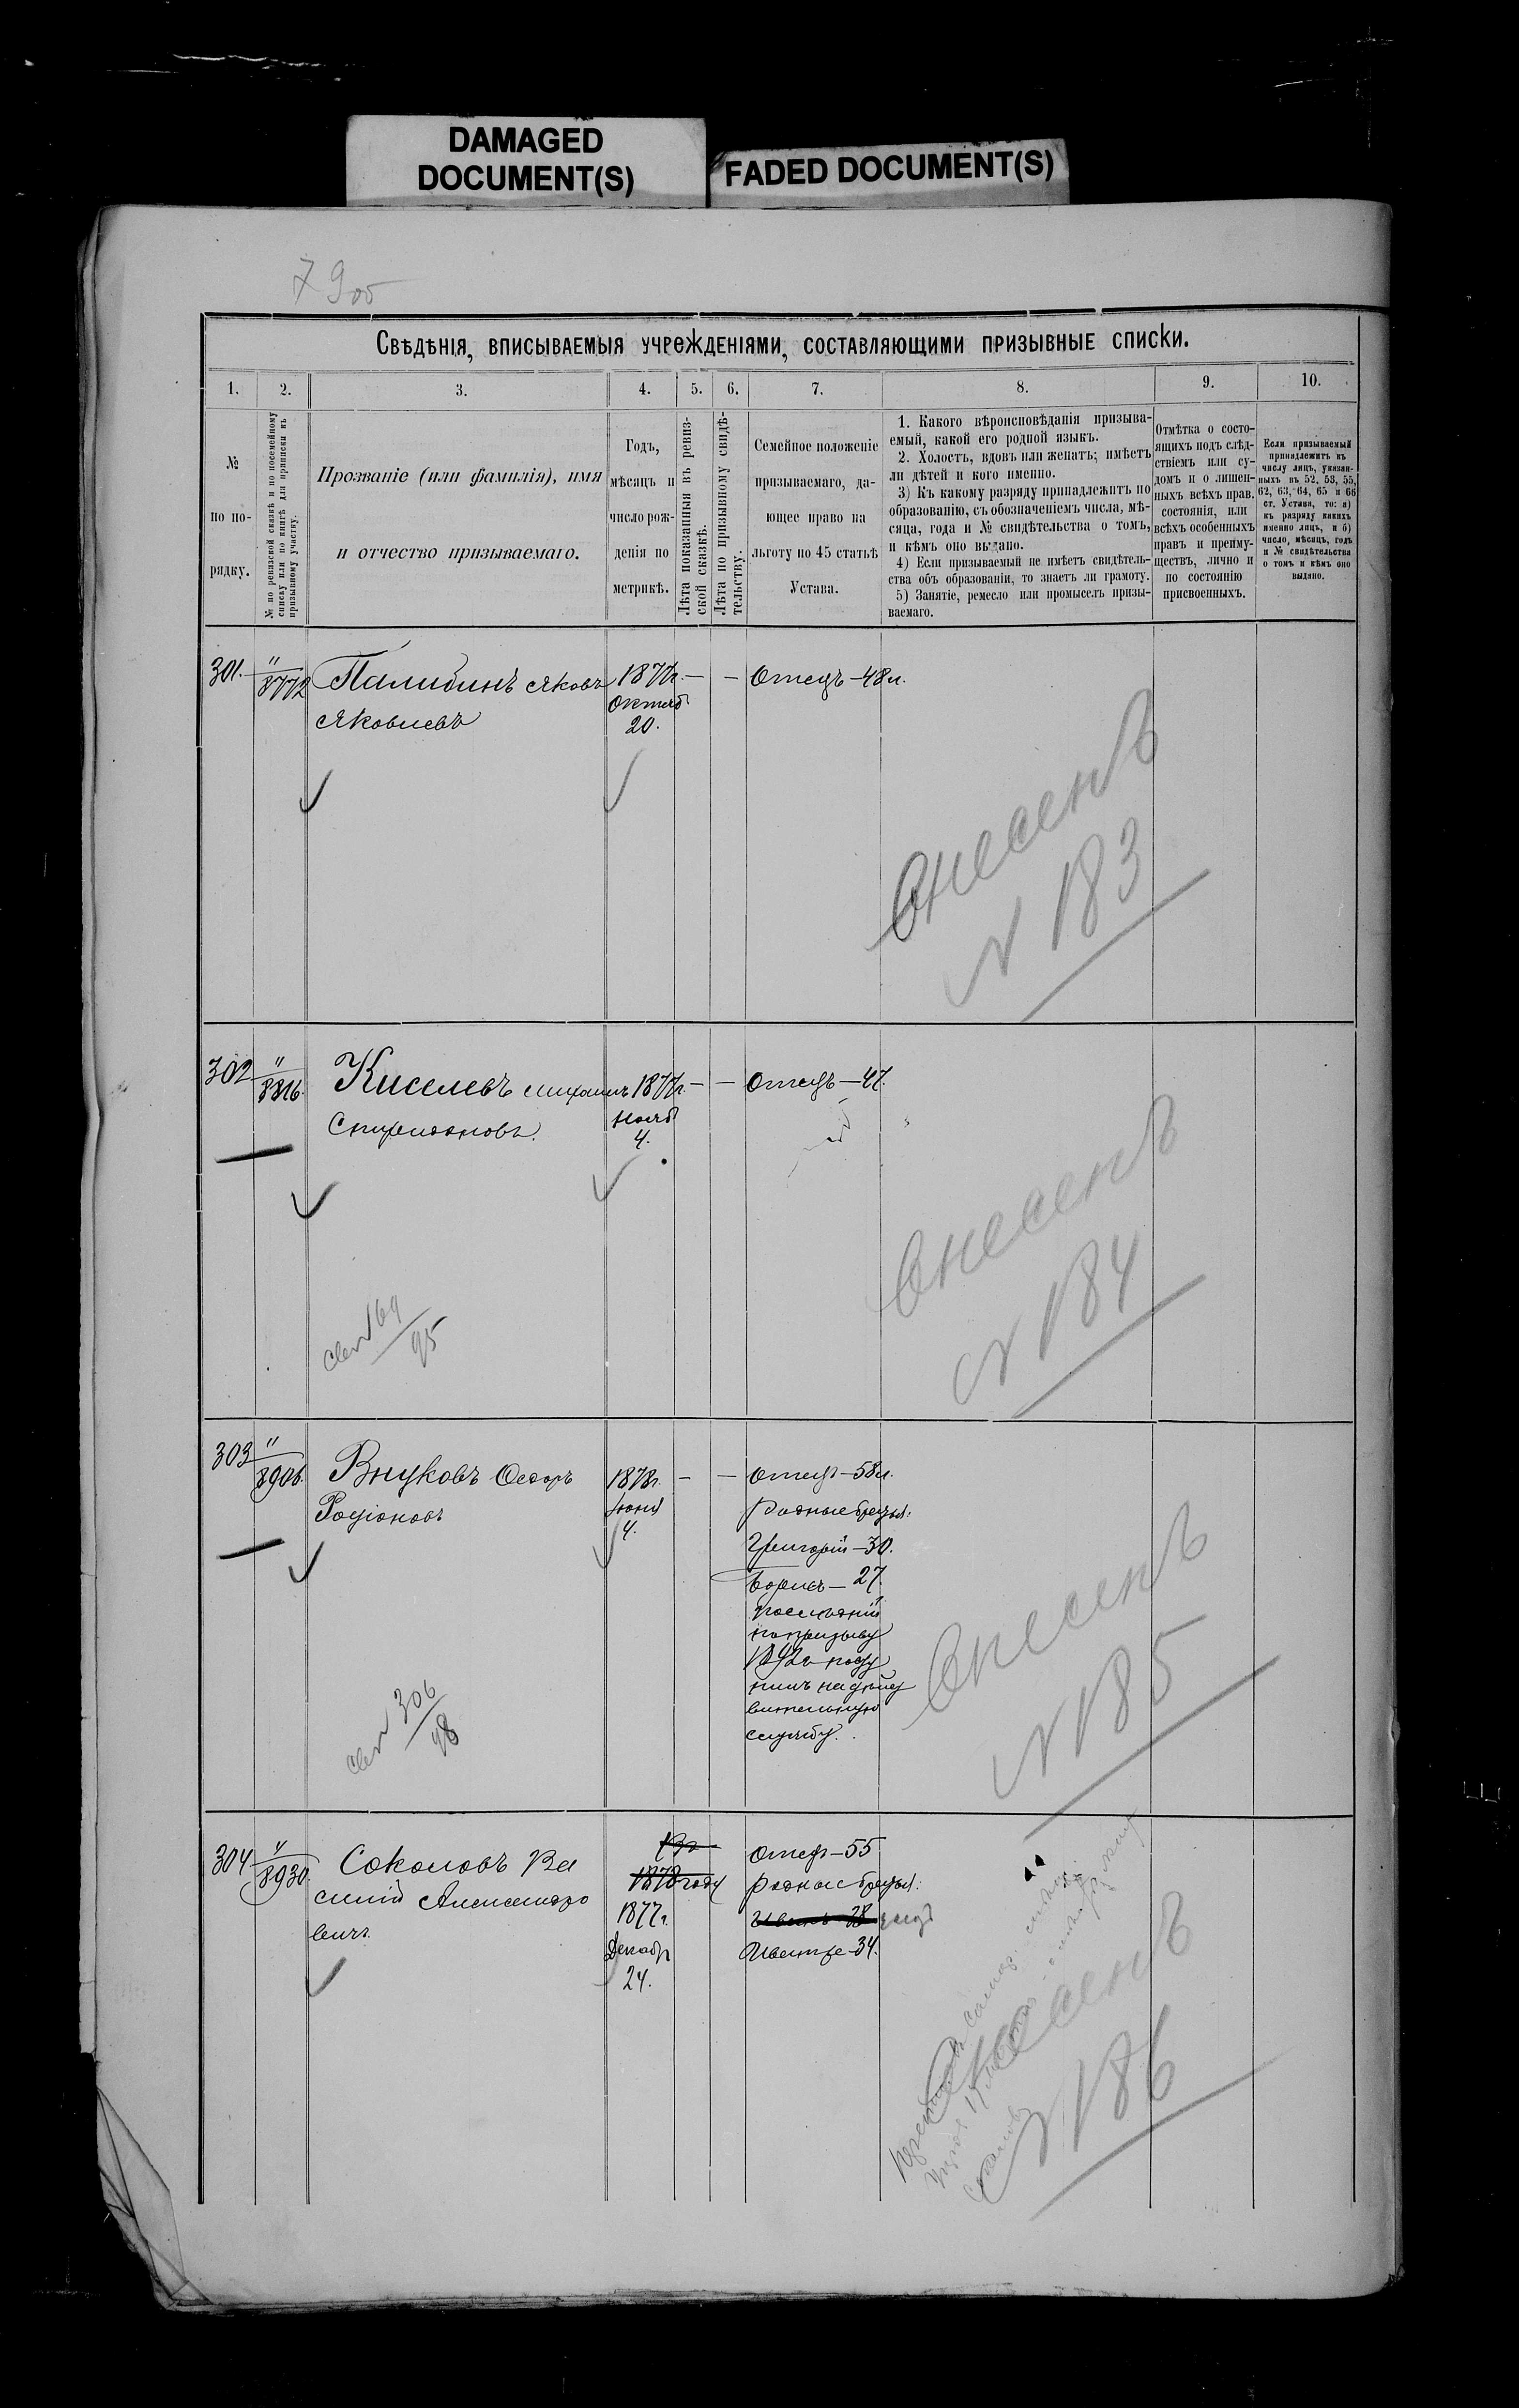 DAMAGED
DOCUMENT(S)
FADED DOCUMENT(S)
79об
Свѣдѣнія, вписываемыя учрежденіями, составляющими призывные списки.
1. 2. 3. 4. 5. 6. 7. 8. 9. 10.
№
по по-
рядку.
№ по ревизской сказкѣ и по посемейному
списку или по книгѣ для приписки къ
призывному участку.
Прозваніе (или фамилія), имя
и отчество призываемаго.
Годъ,
мѣсяцъ и
число рож-
денія по
метрикѣ.
Лѣта показанныя въ ревиз-
ской сказкѣ.
Лѣта по призывному свидѣ-
тельству.
Семейное положеніе
призываемаго, да-
ющее право на
льготу по 45 статьѣ
Устава.
1. Какого вѣроисповѣданія призыва-
емый, какой его родной языкъ.
2. Холостъ, вдовъ или женатъ; имѣетъ
ли дѣтей и кого именно.
3) Къ какому разряду принадлежитъ по
образованію, съ обозначеніемъ числа, мѣ-
сяца, года и № свидѣтельства о томъ,
и кѣмъ оно выдано.
4) Если призываемый не имѣетъ свидѣтель-
ства объ образованіи, то знаетъ ли грамоту.
5) Занятіе, ремесло или промыселъ призы-
ваемаго.
Отмѣтка о состо-
ящихъ подъ слѣд-
ствіемъ или су-
домъ и о лишен-
ныхъ всѣхъ прав.
состоянія, или
всѣхъ особенныхъ
правъ и преиму-
ществъ, лично и
по состоянію
присвоенныхъ.
Если призываемый
принадлежитъ къ
числу лицъ, указан-
ныхъ въ 52, 53, 55,
62, 63, 64, 65 и 66
ст. Устава, то: а)
къ разряду какихъ
именно лицъ, и б)
число, мѣсяцъ, годъ
и № свидѣтельства
о томъ и кѣмъ оно
выдано.
301. " 8772 Палибинъ Яковъ 1877г. — — Отецъ — 48 л.
Яковлевъ Октяб 20.
Внесенъ
№ 183
302 " 8816. Киселевъ Михаилъ 1877г. — — Отецъ — 47.
Спиридоновъ. Нояб 4.
Внесенъ
№ 184
См № 69/95
303 " 8906. Внуковъ Федоръ 1878г. — — Отецъ — 58 л.
Родіоновъ Іюня 4.
Родные братья:
Григорій — 30.
Борисъ — 27.
послѣдній
по призыву
1892г посту
пилъ на дѣйст
вительную
службу.
Внесенъ
№ 185
См № 306/98
304 " 8930. Соколовъ Ва
силій Александро
вичъ.
1878 году
1877г.
Декабр
24.
Отецъ — 55
Родные братья:
Иванъ — 38
Дмитре — 34.
Внесенъ
№ 186